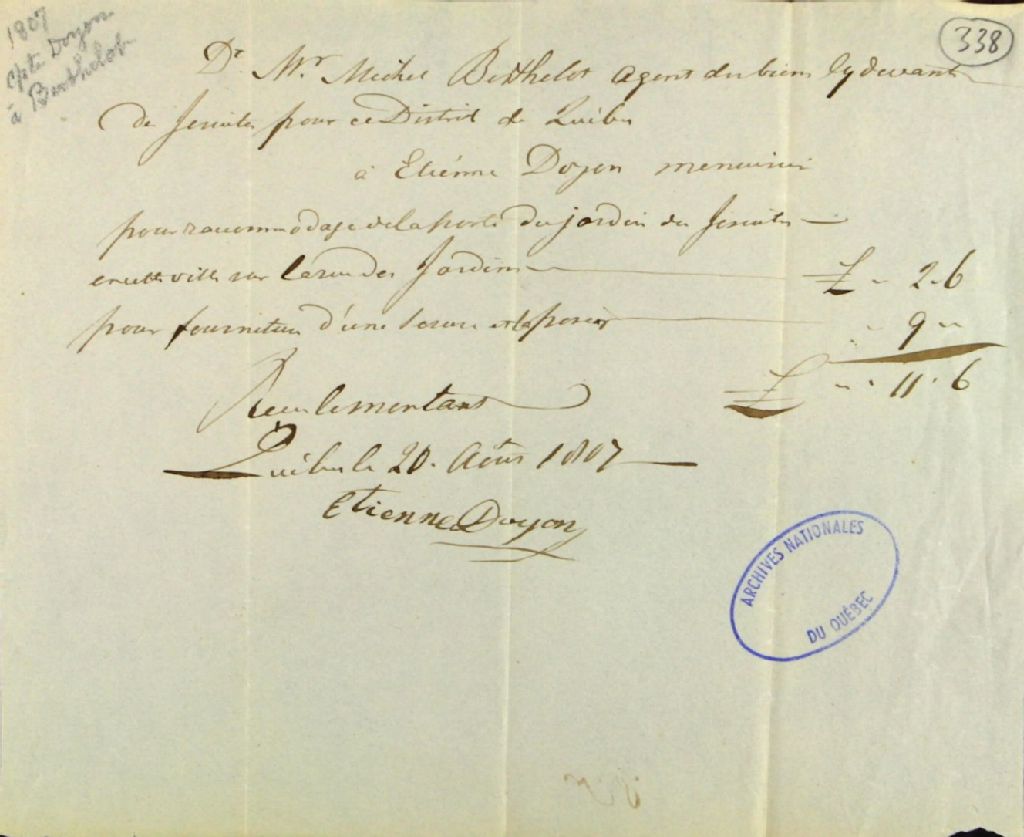 1807
Cpte Doyon
à Berthelot
338
Dr. Mr. Michel Berthelot agent des biens cy devant
de Jesuites pour ce District de Quebec
à Etiénne Doyon menuisier
pour raccommodage de la porte du jardin des Jesuites
en cette ville sur la rue des Jardins £ " 2.6
pour fourniture d'une serure et la poser " 9 "
£ " 11.6
Recu le montant
Quebec le 20. Août 1807
Etienne Doyon
ARCHIVES NATIONALES
DU QUÉBEC